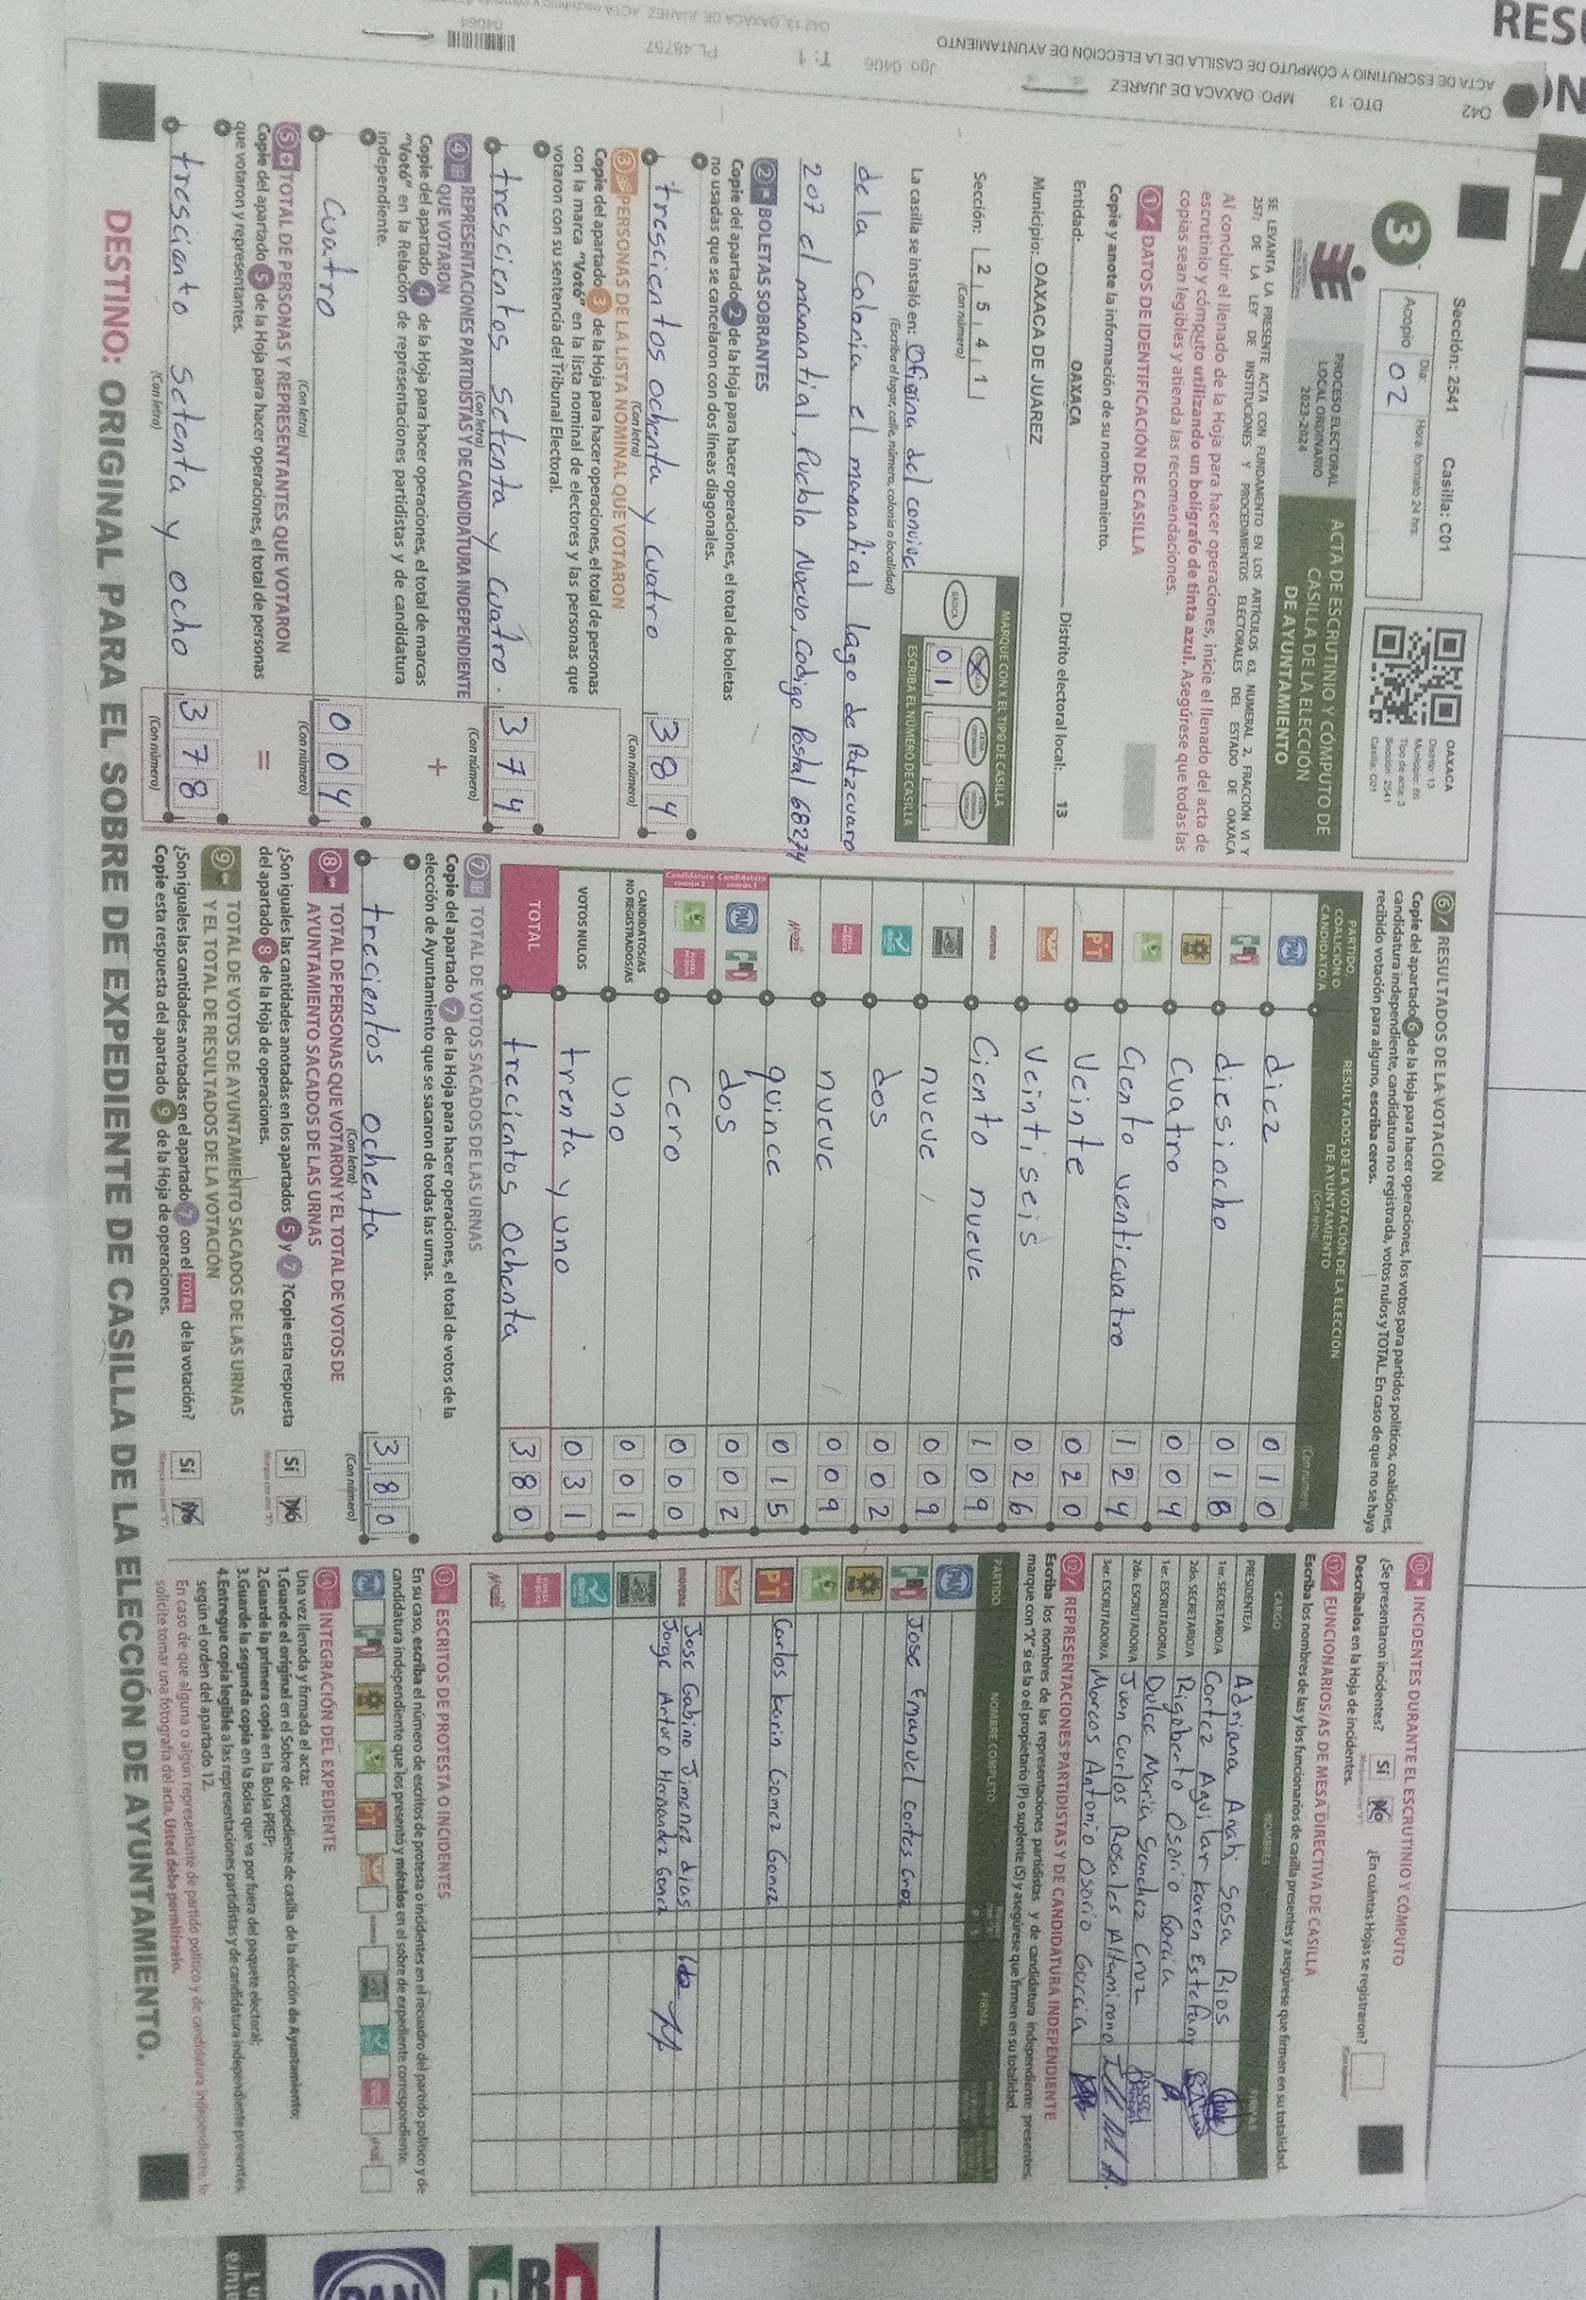 Sección: 2541 Casilla: C01
Acopio
Día:
02
Hora: formato 24 hrs.
OAXACA
Distrito: 13
Municipio: 66
Tipo de acta: 3
Sección: 2541
Casilla: C01
3
PROCESO ELECTORAL
LOCAL ORDINARIO
2023-2024
ACTA DE ESCRUTINIO Y CÓMPUTO DE
CASILLA DE LA ELECCIÓN
DE AYUNTAMIENTO
SE LEVANTA LA PRESENTE ACTA CON FUNDAMENTO EN LOS ARTÍCULOS 63, NUMERAL 2, FRACCIÓN VI Y
257; DE LA LEY DE INSTITUCIONES Y PROCEDIMIENTOS ELECTORALES DEL ESTADO DE OAXACA
Al concluir el llenado de la Hoja para hacer operaciones, inicie el llenado del acta de
escrutinio y cómputo utilizando un bolígrafo de tinta azul. Asegúrese que todas las
copias sean legibles y atienda las recomendaciones.
1 DATOS DE IDENTIFICACIÓN DE CASILLA
Copie y anote la información de su nombramiento.
Entidad: OAXACA Distrito electoral local: 13
Municipio: OAXACA DE JUAREZ
Sección: 2 5 4 1
(Con número)
MARQUE CON X EL TIPO DE CASILLA
BÁSICA
0 1
ESCRIBA EL NÚMERO DE CASILLA
La casilla se instaló en: Oficina del convive
(Escriba el lugar, calle, número, colonia o localidad)
de la Colonia el manantial lago de Patzcuaro
207 el manantial, Pueblo Nuevo, Codigo Postal 68274
2 BOLETAS SOBRANTES
Copie del apartado 2 de la Hoja para hacer operaciones, el total de boletas
no usadas que se cancelaron con dos líneas diagonales.
trescientos ochenta y cuatro 3 8 4
(Con letra) (Con número)
3 PERSONAS DE LA LISTA NOMINAL QUE VOTARON
Copie del apartado 3 de la Hoja para hacer operaciones, el total de personas
con la marca "Votó" en la lista nominal de electores y las personas que
votaron con su sentencia del Tribunal Electoral.
trescientos setenta y cuatro. 3 7 4
(Con letra) (Con número)
4 REPRESENTACIONES PARTIDISTAS Y DE CANDIDATURA INDEPENDIENTE
QUE VOTARON
Copie del apartado 4 de la Hoja para hacer operaciones, el total de marcas
"Votó" en la Relación de representaciones partidistas y de candidatura
independiente.
+
cuatro 0 0 4
(Con letra) (Con número)
5 TOTAL DE PERSONAS Y REPRESENTANTES QUE VOTARON
Copie del apartado 5 de la Hoja para hacer operaciones, el total de personas
que votaron y representantes.
=
tresciento setenta y ocho 3 7 8
(Con letra) (Con número)
6 RESULTADOS DE LA VOTACIÓN
Copie del apartado 6 de la Hoja para hacer operaciones, los votos para partidos políticos, coaliciones,
candidatura independiente, candidatura no registrada, votos nulos y TOTAL. En caso de que no se haya
recibido votación para alguno, escriba ceros.
PARTIDO,
COALICIÓN O
CANDIDATO/A
RESULTADOS DE LA VOTACIÓN DE LA ELECCIÓN
DE AYUNTAMIENTO
(Con letra)
(Con número)
PAN diez 0 1 0
PRI diesiocho 0 1 8
cuatro 0 0 4
ciento venticuatro 1 2 4
PT Veinte 0 2 0
Veintiseis 0 2 6
morena Ciento nueve 1 0 9
nueve 0 0 9
dos 0 0 2
nueve 0 0 9
quince 0 1 5
Candidatura común 1 PAN PRI dos 0 0 2
Candidatura común 2 cero 0 0 0
CANDIDATOS/AS
NO REGISTRADOS/AS uno 0 0 1
VOTOS NULOS trenta y uno 0 3 1
TOTAL trecientos ochenta 3 8 0
7 TOTAL DE VOTOS SACADOS DE LAS URNAS
Copie del apartado 7 de la Hoja para hacer operaciones, el total de votos de la
elección de Ayuntamiento que se sacaron de todas las urnas.
trecientos ochenta 3 8 0
(Con letra) (Con número)
8 TOTAL DE PERSONAS QUE VOTARON Y EL TOTAL DE VOTOS DE
AYUNTAMIENTO SACADOS DE LAS URNAS
¿Son iguales las cantidades anotadas en los apartados 5 y 7 ?Copie esta respuesta
del apartado 8 de la Hoja de operaciones. Sí No
9 TOTAL DE VOTOS DE AYUNTAMIENTO SACADOS DE LAS URNAS
Y EL TOTAL DE RESULTADOS DE LA VOTACIÓN
¿Son iguales las cantidades anotadas en el apartado 7 con el TOTAL de la votación?
Copie esta respuesta del apartado 9 de la Hoja de operaciones. Sí No
10 INCIDENTES DURANTE EL ESCRUTINIO Y CÓMPUTO
¿Se presentaron incidentes? Sí No ¿En cuántas Hojas se registraron?
Descríbalos en la Hoja de incidentes.
11 FUNCIONARIOS/AS DE MESA DIRECTIVA DE CASILLA
Escriba los nombres de las y los funcionarios de casilla presentes y asegúrese que firmen en su totalidad.
CARGO NOMBRES FIRMAS
PRESIDENTE/A Adriana Anahi Sosa Rios
1er. SECRETARIO/A Cortez Aguilar Karen Estefany
2do. SECRETARIO/A Rigoberto Osorio Garcia
1er. ESCRUTADOR/A Dulce Maria Sanchez Cruz
2do. ESCRUTADOR/A Juan Carlos Rosales Altamirano
3er. ESCRUTADOR/A Marcos Antonio Osorio Garcia
12 REPRESENTACIONES PARTIDISTAS Y DE CANDIDATURA INDEPENDIENTE
Escriba los nombres de las representaciones partidistas y de candidatura independiente presentes,
marque con "X" si es la o el propietario (P) o suplente (S) y asegúrese que firmen en su totalidad.
PARTIDO NOMBRE COMPLETO FIRMA
PAN
PRI Jose Emanuel Cortes Cruz
PT Carlos Karin Gomez Gomez
morena Jose Gabino Jimenez dias
Jorge Arturo Hernandez Gomez
13 ESCRITOS DE PROTESTA O INCIDENTES
En su caso, escriba el número de escritos de protesta o incidentes en el recuadro del partido político y de
candidatura independiente que los presentó y métalos en el sobre de expediente correspondiente.
14 INTEGRACIÓN DEL EXPEDIENTE
Una vez llenada y firmada el acta:
1.Guarde el original en el Sobre de expediente de casilla de la elección de Ayuntamiento;
2.Guarde la primera copia en la Bolsa PREP;
3.Guarde la segunda copia en la Bolsa que va por fuera del paquete electoral;
4.Entregue copia legible a las representaciones partidistas y de candidatura independiente presentes,
según el orden del apartado 12.
En caso de que alguna o algún representante de partido político y de candidatura independiente, le
solicite tomar una fotografía del acta, Usted debe permitírselo.
DESTINO: ORIGINAL PARA EL SOBRE DE EXPEDIENTE DE CASILLA DE LA ELECCIÓN DE AYUNTAMIENTO.
ACTA DE ESCRUTINIO Y CÓMPUTO DE CASILLA DE LA ELECCIÓN DE AYUNTAMIENTO
O42 DTO: 13 MPO: OAXACA DE JUAREZ
Jgo: 0406 T: 1 PL 48757
04064
O42 13, OAXACA DE JUAREZ
PAN